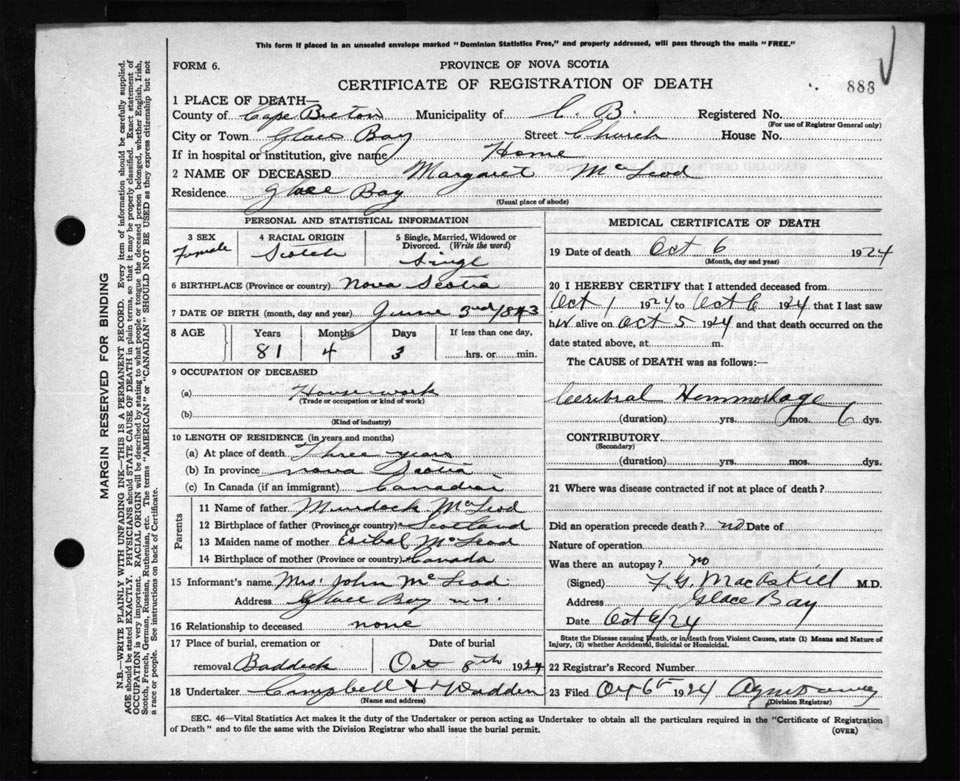 This form if placed in an unsealed envelope marked "Dominion Statistics Free," and properly addressed, will pass through the mails "FREE."
FORM 6. PROVINCE OF NOVA SCOTIA
CERTIFICATE OF REGISTRATION OF DEATH 883
1 PLACE OF DEATH—
County of Cape Breton Municipality of C. B. Registered No.
(For use of Registrar General only)
City or Town Glace Bay Street Church House No.
If in hospital or institution, give name Home
2 NAME OF DECEASED Margaret McLeod
Residence Glace Bay
(Usual place of abode)
PERSONAL AND STATISTICAL INFORMATION
3 SEX Female
4 RACIAL ORIGIN Scotch
5 Single, Married, Widowed or Divorced. (Write the word) Singl
6 BIRTHPLACE (Province or country) Nova Scotia
7 DATE OF BIRTH (month, day and year) June 3rd/843
8 AGE Years Months Days If less than one day,
81 4 3 hrs. or min.
9 OCCUPATION OF DECEASED
(a) Housework
(Trade or occupation or kind of work)
(b)
(Kind of industry)
10 LENGTH OF RESIDENCE (in years and months)
(a) At place of death Three years
(b) In province Nova Scotia
(c) In Canada (if an immigrant) Canadian
Parents
11 Name of father Murdock McLeod
12 Birthplace of father (Province or country) Scotland
13 Maiden name of mother Esibal McLeod
14 Birthplace of mother (Province or country) Canada
15 Informant's name Mrs. John McLeod
Address Glace Bay N.S.
16 Relationship to deceased none
17 Place of burial, cremation or Date of burial
removal Baddeck Oct 8th 1924
18 Undertaker Campbell & McFadden
(Name and address)
MEDICAL CERTIFICATE OF DEATH
19 Date of death Oct 6 1924
(Month, day and year)
20 I HEREBY CERTIFY that I attended deceased from
Oct 1 1924 to Oct 6 1924 that I last saw
her alive on Oct 5 1924 and that death occurred on the
date stated above, at m.
The CAUSE of DEATH was as follows:—
Ceribral Hemmorhage
(duration) yrs. mos. 6 dys.
CONTRIBUTORY
(Secondary)
(duration) yrs. mos. dys.
21 Where was disease contracted if not at place of death?
Did an operation precede death? no Date of
Nature of operation
Was there an autopsy? no
(Signed) F. G. MacAskill M.D.
Address Glace Bay
Date Oct 6/24
State the Disease causing Death, or in death from Violent Causes, state (1) Means and Nature of
Injury, (2) whether Accidental, Suicidal or Homicidal.
22 Registrar's Record Number
23 Filed Oct 6th 1924
(Division Registrar)
SEC. 46—Vital Statistics Act makes it the duty of the Undertaker or person acting as Undertaker to obtain all the particulars required in the "Certificate of Registration
of Death" and to file the same with the Division Registrar who shall issue the burial permit. (OVER)
MARGIN RESERVED FOR BINDING
N.B.—WRITE PLAINLY WITH UNFADING INK—THIS IS A PERMANENT RECORD. Every item of information should be carefully supplied.
AGE should be stated EXACTLY. PHYSICIANS should STATE CAUSE OF DEATH in plain terms, so that it may be properly classified. Exact statement of
OCCUPATION is very important. RACIAL ORIGIN will be described by stating to what people or tongue the deceased person belonged, whether English, Irish,
Scotch, French, German, Russian, Ruthenian, etc. The terms "AMERICAN" or "CANADIAN" SHOULD NOT BE USED as they express citizenship but not
a race or people. See instructions on back of Certificate.